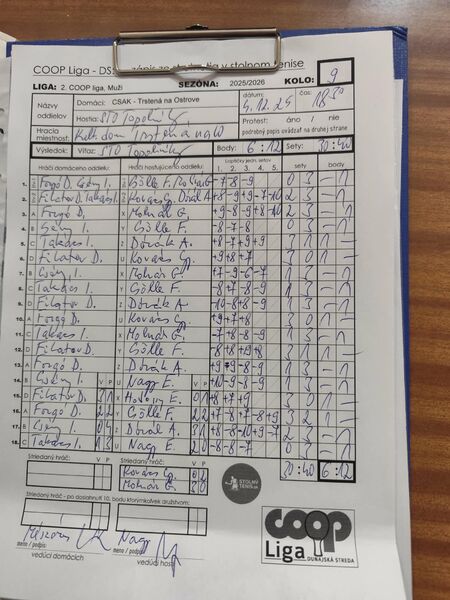 COOP Liga - DS: zápis zo stretnutia v stolnom tenise
LIGA: 2. COOP liga, Muži SEZÓNA: 2025/2026 KOLO: 9
Názvy oddielov Domáci: CSAK - Trstená na Ostrove dátum: 4.12.25 čas: 18:30
Hostia: STO Topolníky Protest: áno / nie
Hracia miestnosť: Kult. dom Trstená na O podrobný popis uvádzať na druhej strane
Výsledok: Víťaz: STO Topolníky Body: 6:12 Sety: 30:40
Hráči domáceho oddielu: Hráči hosťujúceho oddielu: Loptičky jedn. setov sety body
1. Forgó D. Csény I. Gőlle F. -7 -8 -9 0 3 - 1
2. Filatov D. Takács I. Kovács Gp. Dózsa A. +8 -9 +9 -7 -10 2 3 - 1
3. A Forgó D. X Molnár G. +9 -8 -9 +8 -10 2 3 - 1
4. B Csény I. Y Gőlle F. -8 -7 -8 0 3 - 1
5. C Takács I. Z +8 -7 +9 +9 3 1 1 -
6. D Filatov D. U Kovács Gp. +9 +8 +7 3 0 1 -
7. B Csény I. X Molnár G. +7 -9 -6 -7 1 3 - 1
8. C Takács I. Y Gőlle F. -8 +7 -8 -9 1 3 - 1
9. D Filatov D. Z Dózsa A. -10 -8 +8 -9 1 3 - 1
10. A Forgó D. U Kovács Gp. +9 +7 +8 3 0 1 -
11. C Takács I. X Molnár G. -7 +8 -8 -9 1 3 - 1
12. D Filatov D. Y Gőlle F. 3 1 1 -
13. A Forgó D. Z Dózsa A. 1 3 - 1
14. B Csény I. U Nagy E. +10 -9 -8 -9 1 3 - 1
V P V P
15. D Filatov D. 3 1 X 0 1 +8 +7 +9 3 0 1 -
16. A Forgó D. 2 2 Y Gőlle F. 2 2 +7 -8 +7 -8 +9 3 2 1 -
17. B Csény I. 0 4 Z Dózsa A. 3 1 +8 -8 -10 +9 -7 2 3 - 1
18. C Takács I. 1 3 U Nagy E. 2 0 -8 -5 -7 0 3 - 1
Striedaný hráč: Striedaný hráč: V P 30:40 6:12
Kovács Gp. 0 2
Molnár G.
STOLNÝ TENIS.sk
Striedaný hráč - po dosiahnutí 10. bodu ktorýmkoľvek družstvom:
Mészáros Nagy
meno / podpis: meno / podpis:
vedúci domácich vedúci hostí
COOP
Liga DUNAJSKÁ STREDA